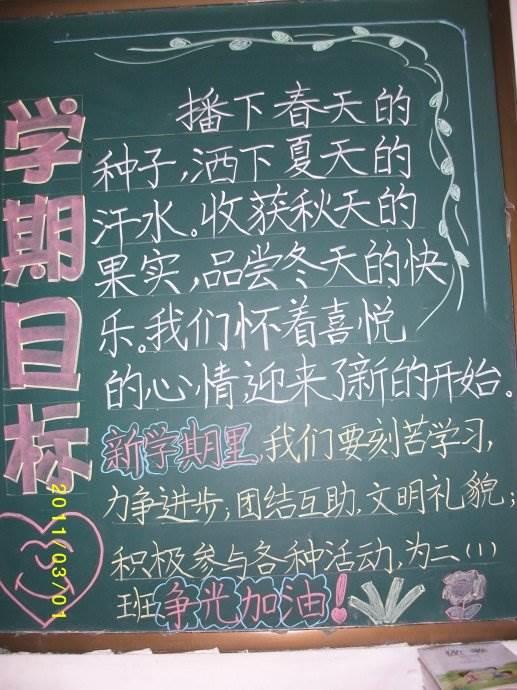 学期目标
播下春天的
种子,洒下夏天的
汗水。收获秋天的
果实,品尝冬天的快
乐。我们怀着喜悦
的心情迎来了新的开始。
新学期里,我们要刻苦学习,
力争进步;团结互助,文明礼貌;
积极参与各种活动,为二(1)
班争光加油!
2011/03/01